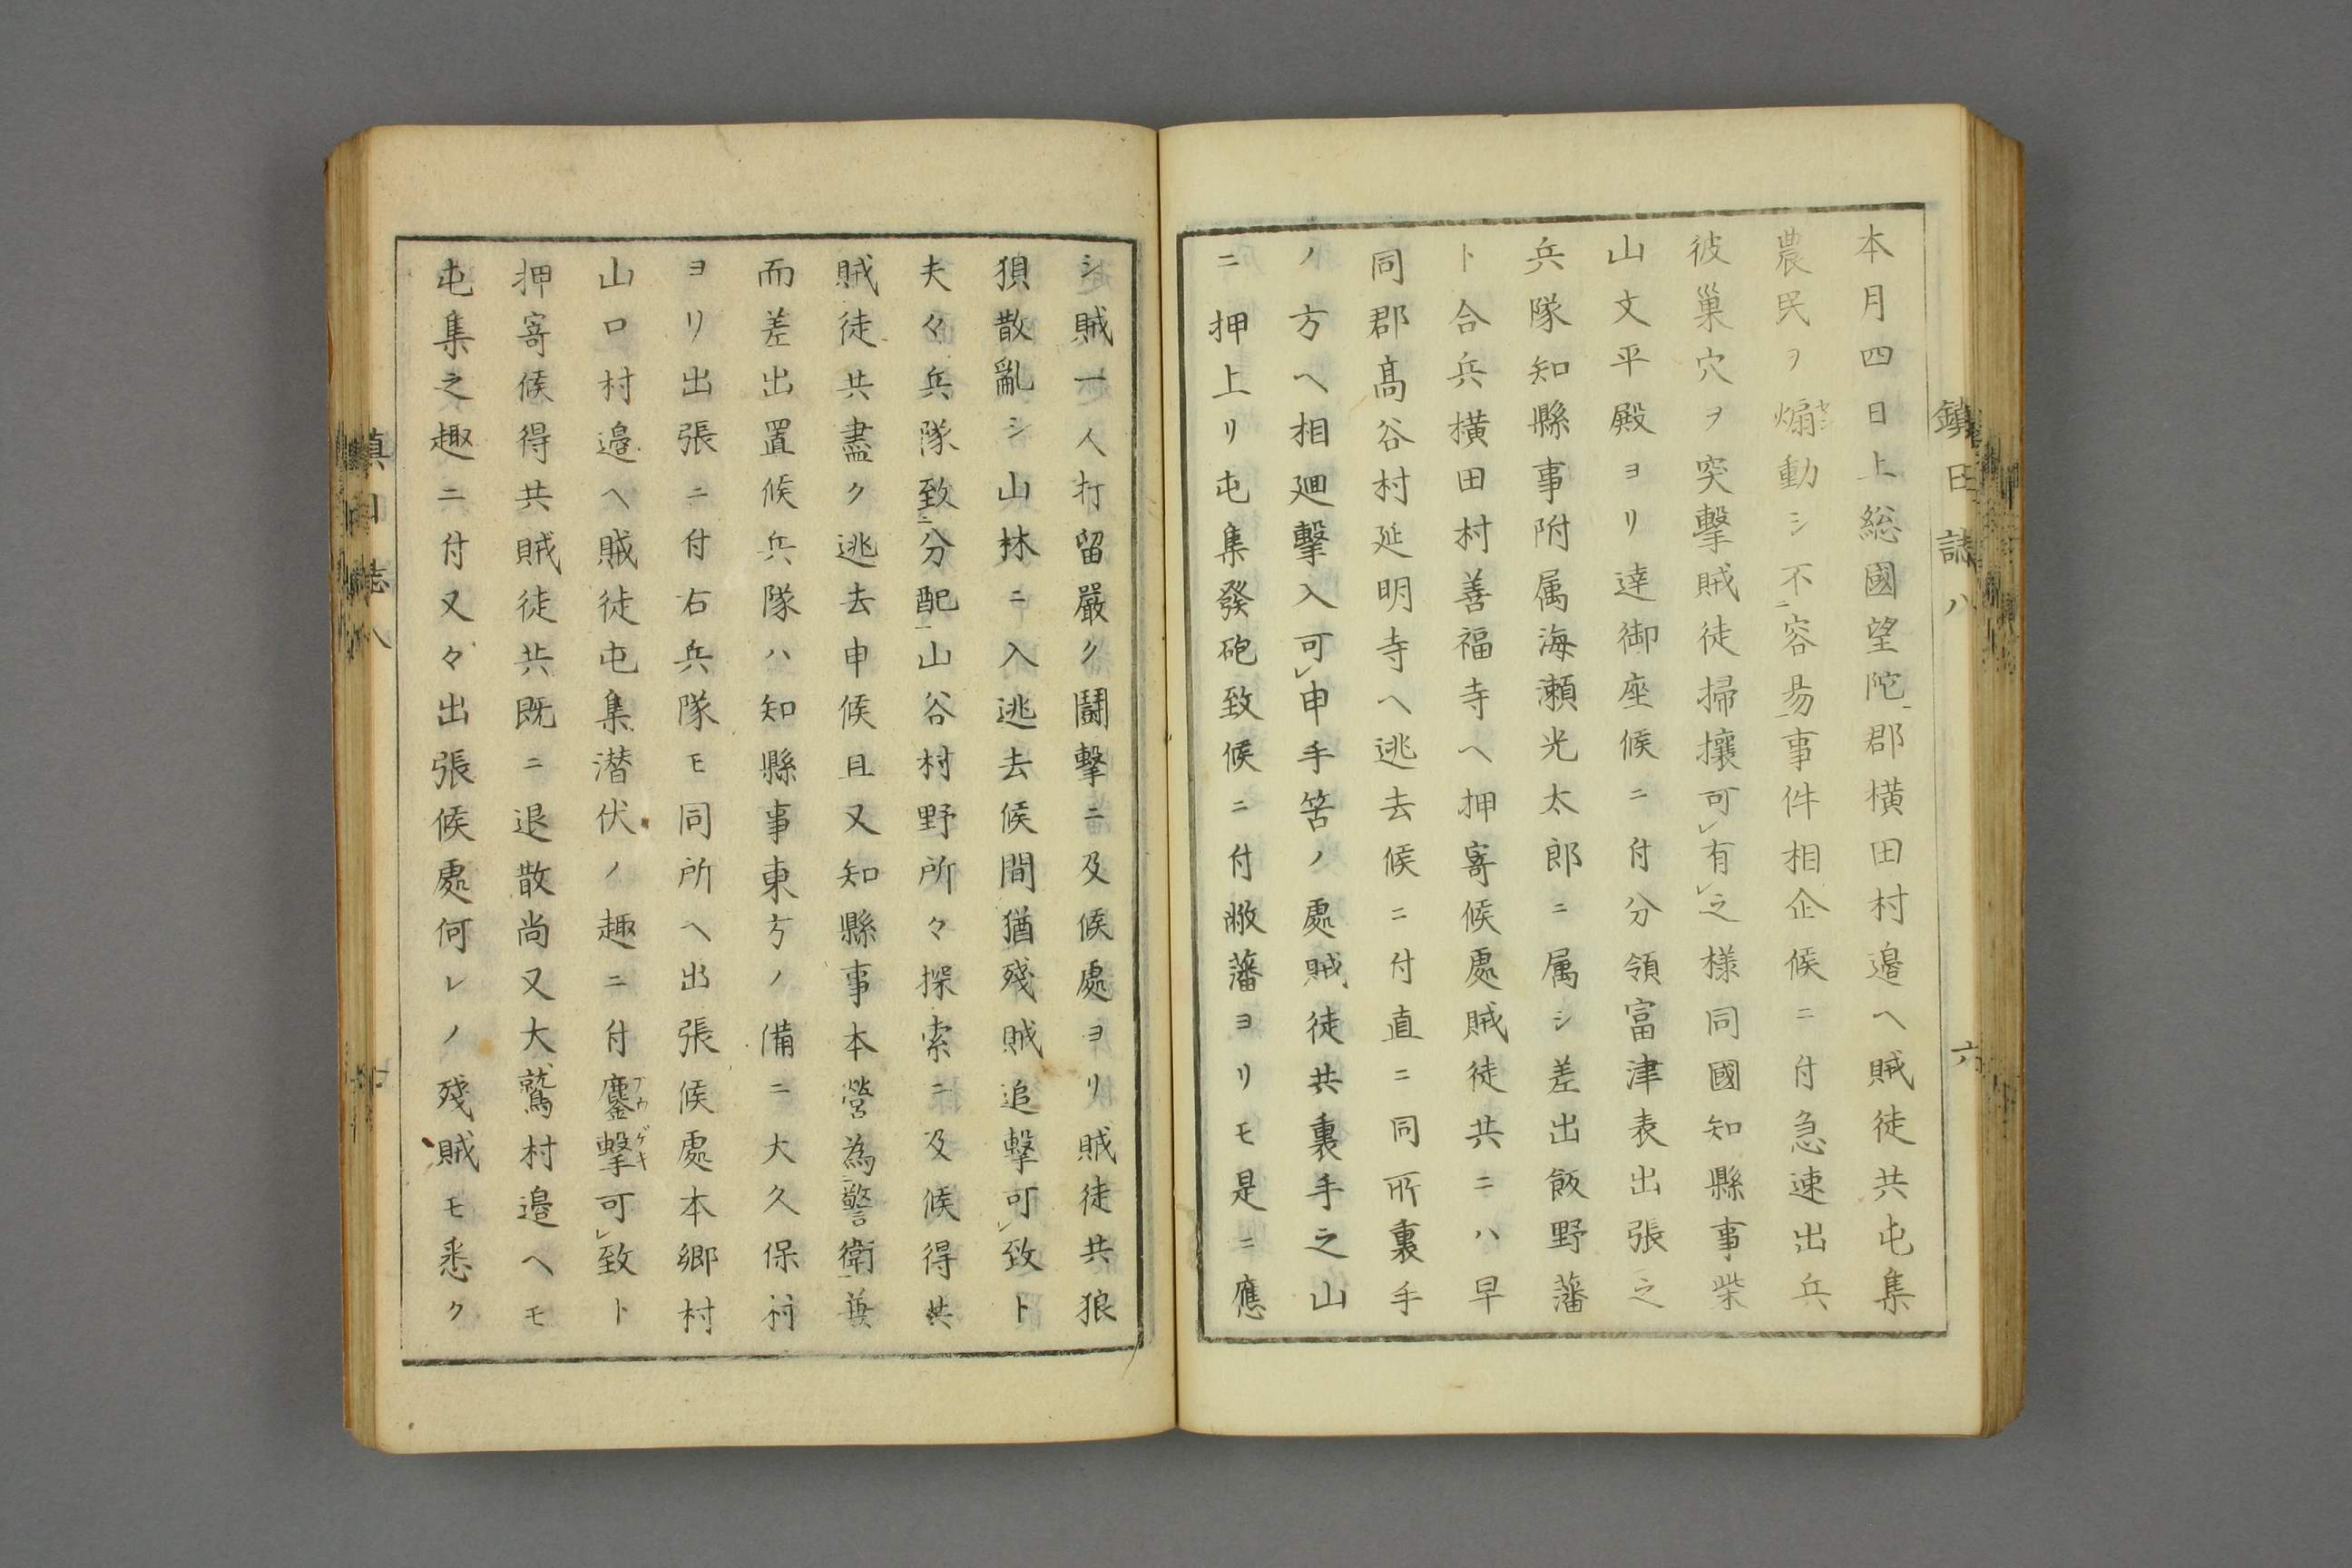 鎮日誌八
六
本月四日上総國望陀郡横田村邉ヘ賊徒共屯集
農民ヲ煽動シ不二容易一事件相企候ニ付急速出兵
彼巣穴ヲ突撃賊徒掃攘可レ有レ之様同國知縣事柴
山文平殿ヨリ達御座候ニ付分領富津表出張之
兵隊知縣事附属海瀬光太郎ニ属シ差出飯野藩
ト合兵横田村善福寺ヘ押寄候處賊徒共ニハ早
同郡髙谷村延明寺ヘ逃去候ニ付直ニ同所裏手
ノ方ヘ相廻撃入可レ申手筈ノ處賊徒共裏手之山
ニ押上リ屯集發砲致候ニ付敝藩ヨリモ是ニ應
シ賊一人打留嚴ク鬪撃ニ及候處ヨリ賊徒共狼
狽散亂シ山林ニ入逃去候間猶殘賊追撃可レ致ト
夫々兵隊致二分配一山谷村野所々探索ニ及候得共
賊徒共盡ク逃去申候且又知縣事本營為二警衛一兼
而差出置候兵隊ハ知縣事東方ノ備ニ大久保村
ヨリ出張ニ付右兵隊モ同所ヘ出張候處本郷村
山口村邉ヘ賊徒屯集潜伏ノ趣ニ付鏖撃可レ致ト
押寄候得共賊徒共既ニ退散尚又大鷲村邉ヘモ
屯集之趣ニ付又々出張候處何レノ殘賊モ悉ク
鎮日誌八